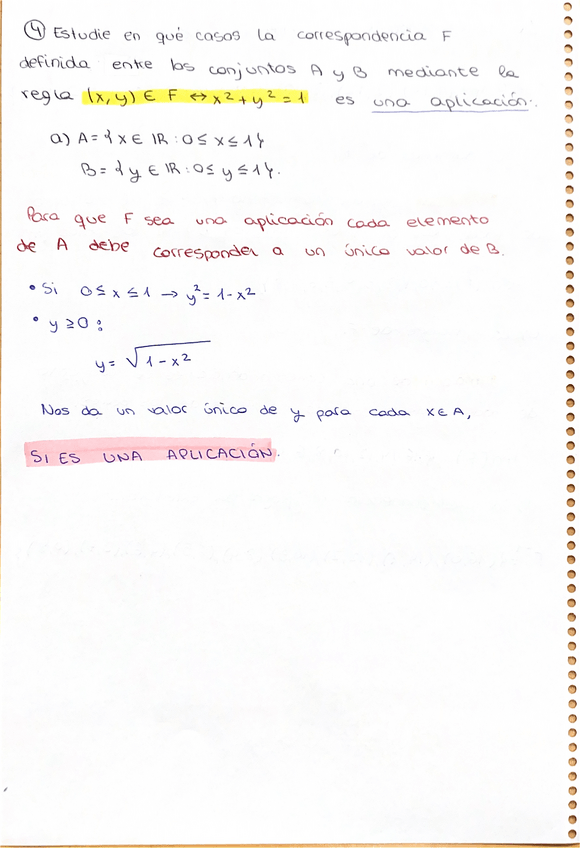 ④ Estudie en qué casos la correspondencia F
definida entre los conjuntos A y B mediante la
regla (x,y) ∈ F ↔ x² + y² = 1 es una aplicación.
a) A = { x ∈ IR : 0 ≤ x ≤ 1 }
B = { y ∈ IR : 0 ≤ y ≤ 1 }.
Para que F sea una aplicación cada elemento
de A debe corresponder a un único valor de B.
• Si 0 ≤ x ≤ 1 → y² = 1 - x²
• y ≥ 0 :
y = √1 - x²
Nos da un valor único de y para cada x ∈ A,
SI ES UNA APLICACIÓN.